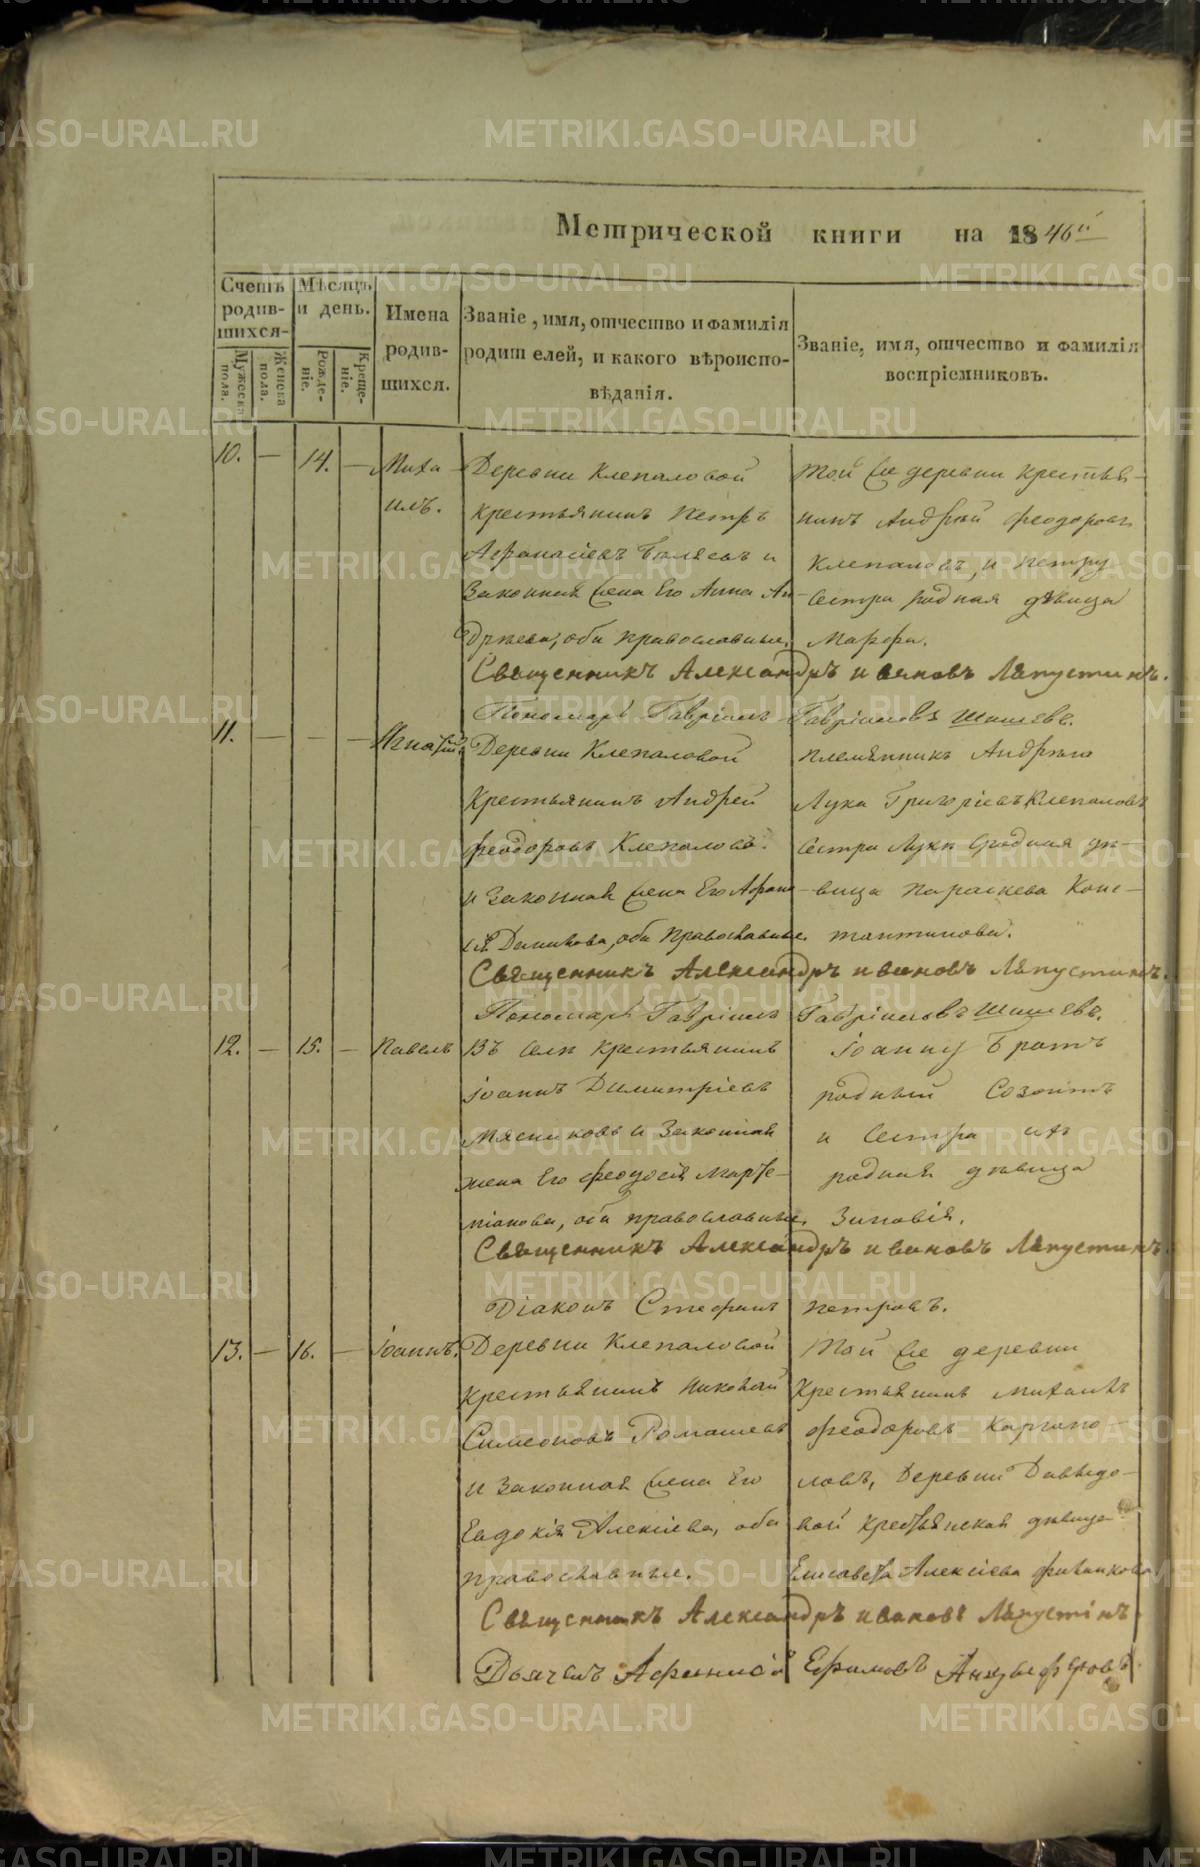 Метрической книги на 1846й
Счетъ родившихся
Мѣсяцъ и день.
Имена родившихся.
Званіе, имя, отчество и фамилія родителей, и какого вѣроисповѣданія.
Званіе, имя, отчество и фамилія воспріемниковъ.
Мужеска пола.
Женска пола.
Рожденіе.
Крещеніе.
10. — 14. — Миха
илъ.
Деревни Клепаловой
крестьянинъ Петръ
Афанасіевъ Бѣляевъ и
Законная жена Его Анна Ан
дреева, оба православные.
Той же деревни Крестья-
нинъ Андрей Феодоровъ
Клепаловъ, и Петру
Сестра родная дѣвица
Марфа.
Священникъ Александръ Ивановъ Ляпустинъ.
Пономарь Гавріилъ Гавріиловъ Шишевъ.
11. — — —
Деревни Клепаловой
Крестьянинъ Андрей
Феодоровъ Клепаловъ.
и Законная жена Его
оба Православные.
племянникъ Андрею
Лука Григорієвъ Клепаловъ
Сестра Луки Сродная дѣ-
вица Параскева Конс-
тантинова.
Священникъ Александръ Ивановъ Ляпустинъ.
Пономарь Гавріилъ Гавріиловъ Шишевъ.
12. — 15. — Павелъ
Въ Селѣ крестьянинъ
Іоаннъ Димитріевъ
Мясниковъ и Законная
жена Его Феодосія Март-
ніанова, оба православные.
Іоанну братъ
родный Созонтъ
и Сестра их
родная дѣвица
Зиновія.
Священникъ Александръ Ивановъ Ляпустинъ.
Діаконъ Стефанъ Петровъ.
13. — 16. — Іоаннъ.
Деревни Клепаловой
Крестьянинъ Николай
Симеоновъ Ромашевъ
и Законная жена Его
Евдокія Алексіева, оба
православные.
Той же деревни
Крестьянинъ Михаилъ
Феодоровъ Каргапо-
ловъ, Деревни Давыдо-
вой крестьянская дѣвица
Елисавета Алексіева
Священникъ Александръ Ивановъ Ляпустинъ.
Дьячекъ Афанасій Ефимовъ
METRIKI.GASO-URAL.RU